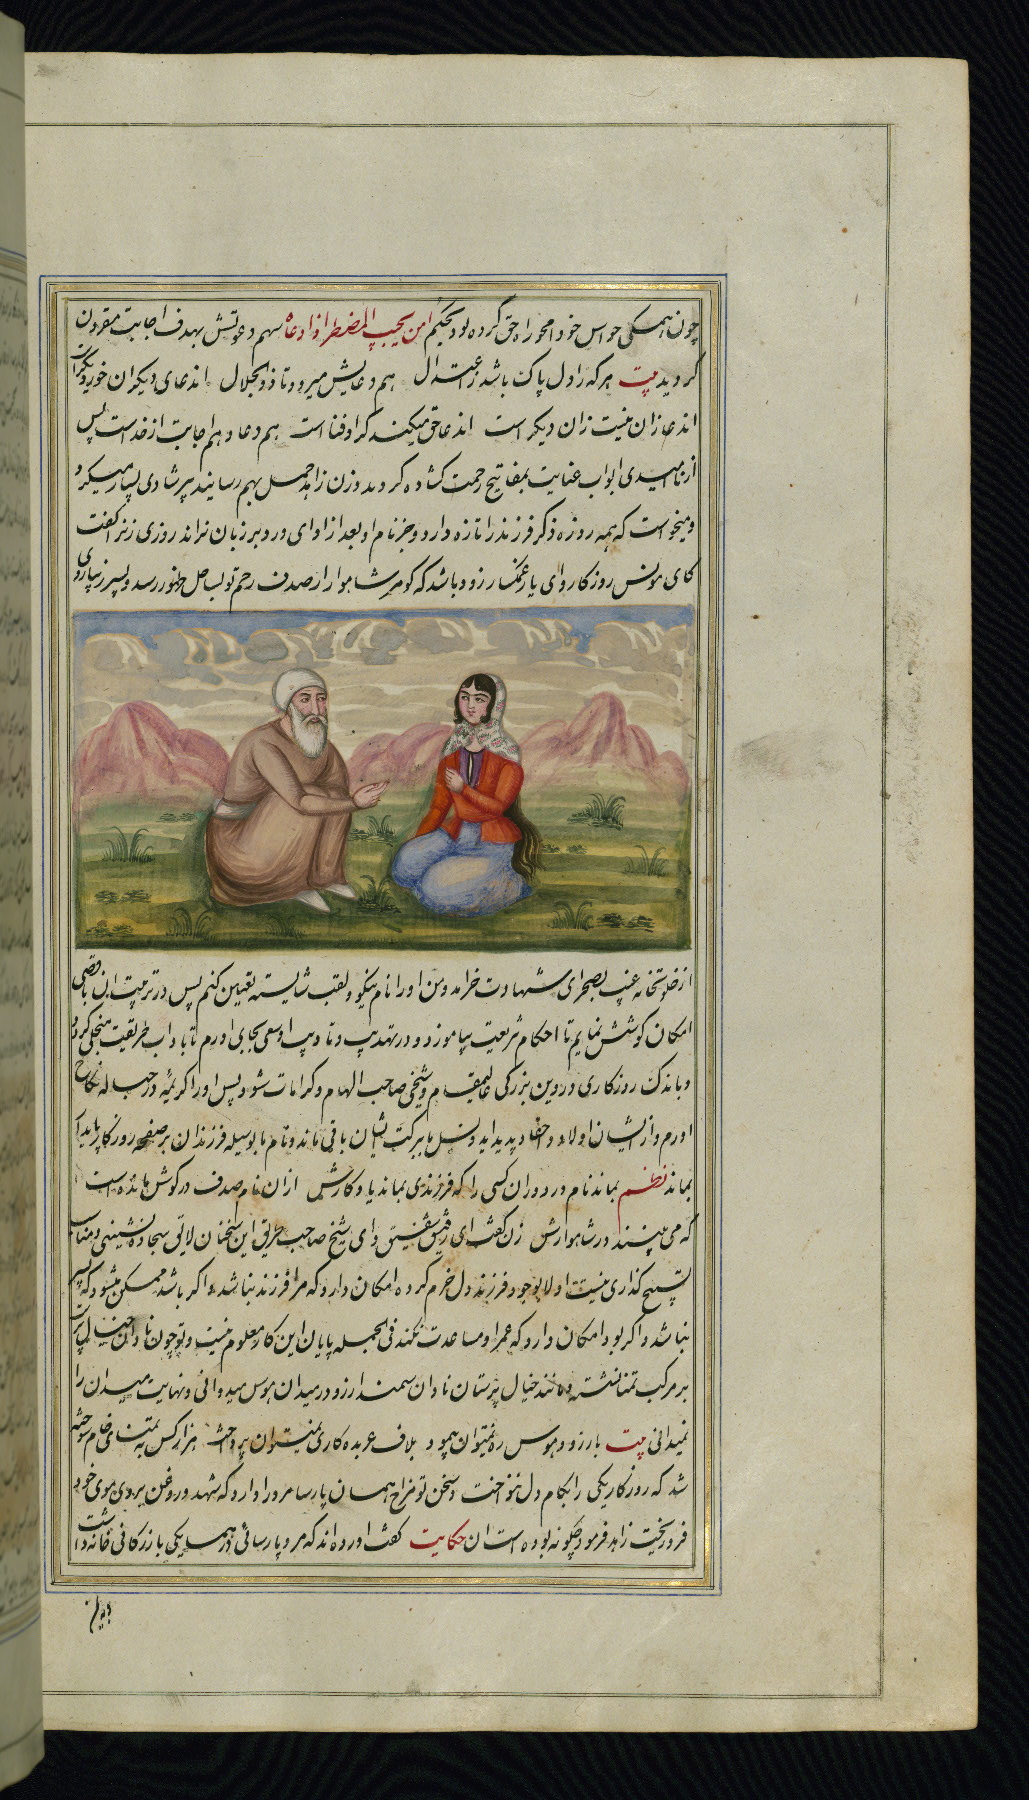 چون همکی حواس خود را محو راه حق کرده بود بحکم امن یجیب المضطر اذا دعاه سهم دعوتش بهدف اجابت مقرون
کردید بیت هر که را دل پاک باشد ز اعتدال هم دعایش میرود تا ذو الجلال اندعای دیکران خود دیکر است
اندعا زان نیست زان دیکر است اندعا حق میکند کر او فناست هم دعا و هم اجابت از خداست پس
از ناامیدی ابواب عنایت بمفاتیح رحمت کشاده کردید و زن زاهد حمل بهم رسانید پیر شادی بسیار میکرد و
و میخواست که همه روزه ذکر فرزند را تازه دارد و جز نام او بعد از ادای ورد بر زبان نراند روزی زنرا کفت
کای مونس روزکار و ای یار غمکسار زود باشد که کوهر شاهوار از صدف رحم تو بساحل ظهور رسد و پسر زیبا روی
از خلوتخانه غیب بصحرای شهادت خرامد و من اورا نام نیکو و لقب شایسته تعیین کنم پس در تربیت ان باقصی
امکان کوشش نمایم تا احکام شریعت بیاموزد و در تهذیب و تادیب او سعی بجای اورم تا باداب طریقت متحلی کردد
و باندک روزکاری در دین بزرکی عالیمقام و شیخی صاحب الهام و کرامات شود پس اورا کریمه در حباله نکاح
اورم و از ایشان اولاد و احفاد پدید اید و نسل ما ببرکت ایشان باقی ماند و نام ما بوسیله فرزندان بر صفحه روزکار پایدار
بماند نظم بماند نام در دوران کسی را که فرزندی بماند یادکارش ازان نام صدف در کوش مانده است
که می بینند در شاهوارش زن کفت ای رفیق شفیق و ای شیخ صاحب طریق این سخنان لایق سجاده نشینی و مناسب
تسبیح کذاری نیست اولا بوجود فرزند دل خرم کرده امکان دارد که مرا فرزند نباشد و اکر باشد ممکن میشود که پسر
نباشد و اکر بود امکان دارد که عمر او مساعدت نکند فی الجمله پایان این کار معلوم نیست و تو چون نادان خیال پرست
بر مرکب تمنا نشسته و مانند خیال پرستان نادان سمند ارزو در میدان هوس میدوانی و نهایت میدان را
نمیدانی بیت بارزو و هوس ره نمیتوان پیمود بلاف عربده کاری نمیتوان پرداخت هزار کس به تمنای خام سوخته
شد که روزکار یکی را بکام دل ننواخت و سخن تو مزاج همان پارسا مرد را دارد که شهد و روغن بر وی موی خود
فرو ریخت زاهد فرمود چکونه بوده است ان حکایت کفت اورده اند که مرد پارسائی در همسایکی بازرکانی خانه داشت